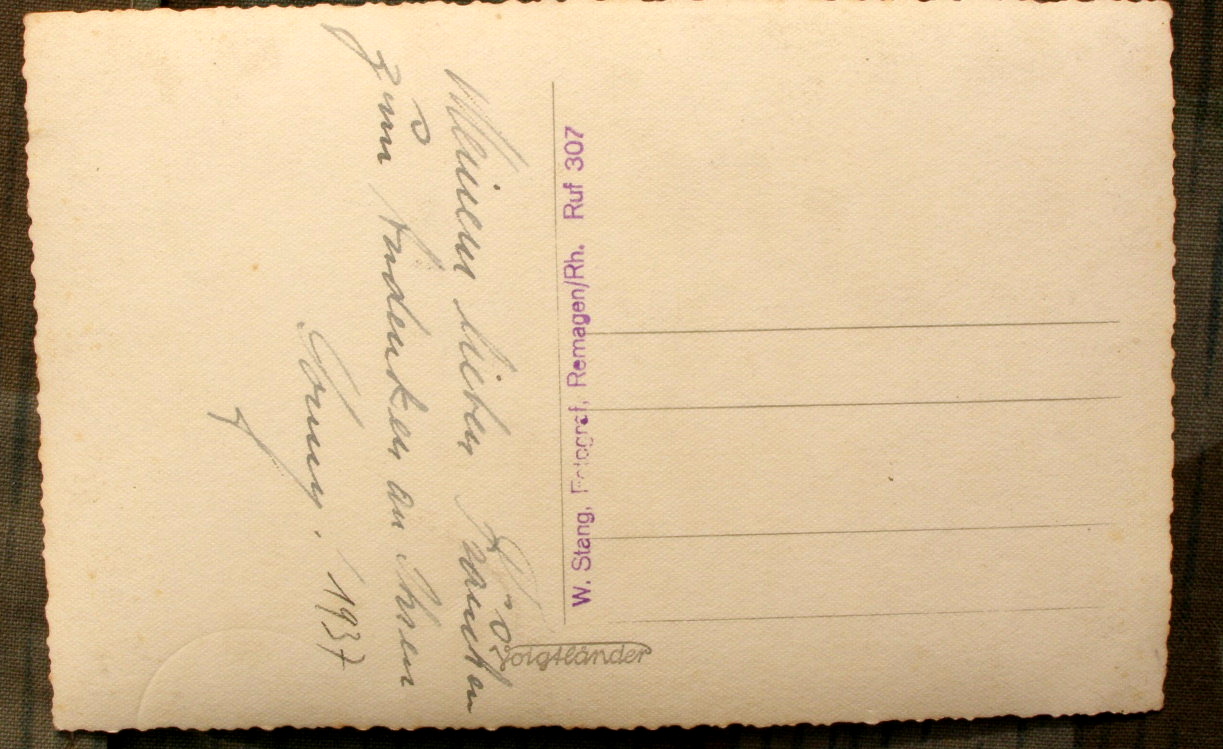 Meinem lieben
zum Andenken an Ihren
1937
W. Stang, Fotograf, Remagen/Rh. Ruf 307
Voigtländer